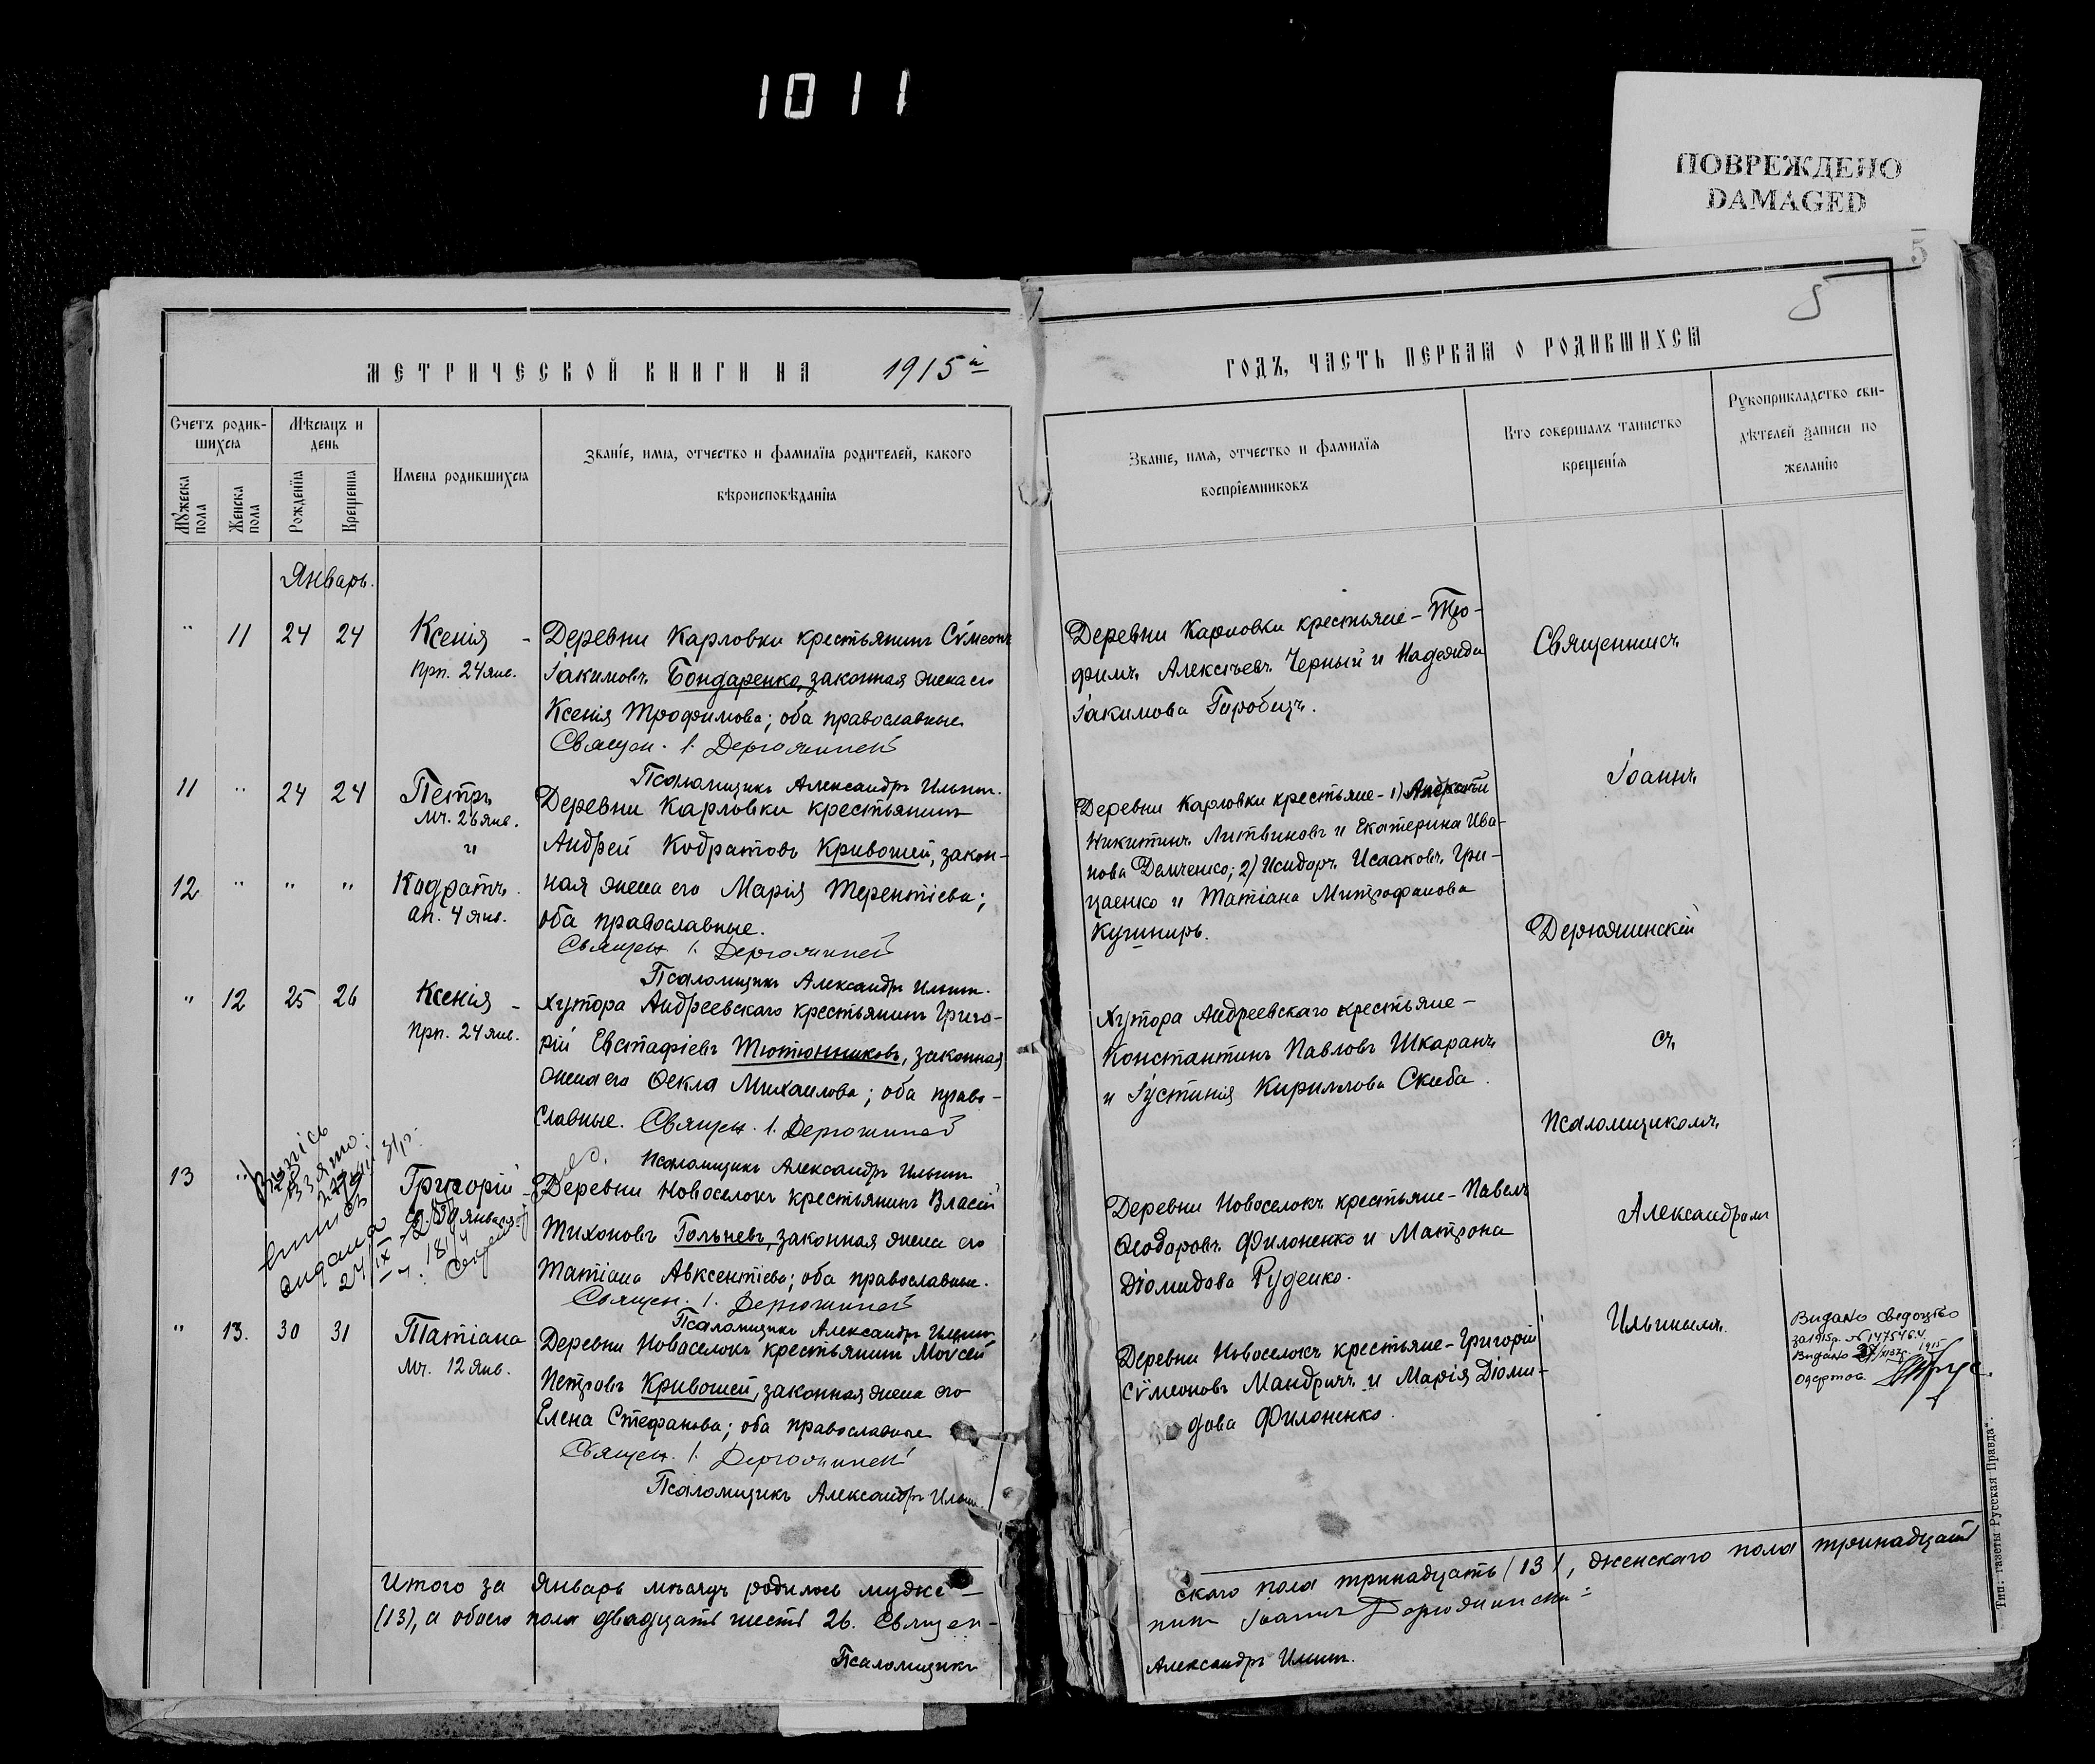 1011
ПОВРЕЖДЕНО
DAMAGED
5
5
МЕТРИЧЕСКОЙ КНИГИ НА 1915й
Счетъ родив-
шихся
Мѣсяцъ и
день
Мужеска
пола
Женска
пола
Рожденія
Крещенія
Имена родившихся
Званіе, имя, отчество и фамилія родителей, какого
вѣроисповѣданія
Январь.
" 11 24 24 Ксенія - Деревни Карловки крестьянинъ Сѵмеонъ
прп. 24 янв. Іакимовъ Бондаренко, законная жена его
Ксенія Трофимова; оба православные
Священ. І. Дерюжинскій
Псаломщикъ Александръ Ильинъ.
11 " 24 24 Петръ Деревни Карловки крестьянинъ
мч. 26 янв.
и Андрей Кодратовъ Кривошей, закон-
12 " " " Кодратъ. ная жена его Марія Терентіева;
ап. 4 янв. оба православные.
Священ. І. Дерюжинскій
Псаломщикъ Александръ Ильинъ.
" 12 25 26 Ксенія - Хутора Андреевскаго крестьянинъ Григо-
прп. 24 янв. рій Евстафіевъ Тютюнниковъ, законная
жена его Ѳекла Михаилова; оба право-
славные. Священ. І. Дерюжинскій
Псаломщикъ Александръ Ильинъ
13 " Григорій - Деревни Новоселокъ крестьянинъ Власій
св. 30 января Тихоновъ Гольневъ, законная жена его
Татіана Авксентіева; оба православные.
Священ. І. Дерюжинскій
Псаломщикъ Александръ Ильинъ
видана
24/IX
" 13. 30 31 Татіана Деревни Новоселокъ крестьянинъ Моѵсей
мч. 12 янв. Петровъ Кривошей, законная жена его
Елена Стефанова; оба православные
Священ. І. Дерюжинскій
Псаломщикъ Александръ Ильин.
Итого за Январь мѣсяцъ родилось мужe-
(13), а обоего пола двадцать шесть 26. Священ-
Псаломщикъ
ГОДЪ, ЧАСТЬ ПЕРВАЯ О РОДИВШИХСЯ
Званіе, имя, отчество и фамилія
воспріемниковъ
Кто совершалъ таинство
крещенія
Рукоприкладство сви-
дѣтелей записи по
желанію
Деревни Карловки крестьяне - Тро-
фимъ Алексѣевъ Черный и Надежда
Іакимова Горобецъ.
Деревни Карловки крестьяне - 1)
Никитинъ Литвиновъ и Екатерина Ива-
нова Демченко; 2) Исидоръ Исааковъ Гри-
цаенко и Татіана Митрофанова
Кушниръ.
Хутора Андреевскаго крестьяне -
Константинъ Павловъ Шкаранъ
и Іустинія Кириллова Скиба.
Деревни Новоселокъ крестьяне - Павелъ
Ѳеодоровъ Филоненко и Матрона
Діомидова Руденко.
Деревни Новоселокъ крестьяне - Григорій
Сѵмеоновъ Мандричъ и Марія Діоми-
дова Филоненко.
Священникъ
Іоаннъ
Дерюжинскій
съ
Псаломщикомъ
Александромъ
Ильинымъ.
Видано свидоцтво
за 1915р. №
Видано
ского пола тринадцать (13), женскаго пола тринадцать
никъ Іоаннъ Дерюжинскій
Александръ Ильинъ.
Тип. газеты „Русская Правда“.